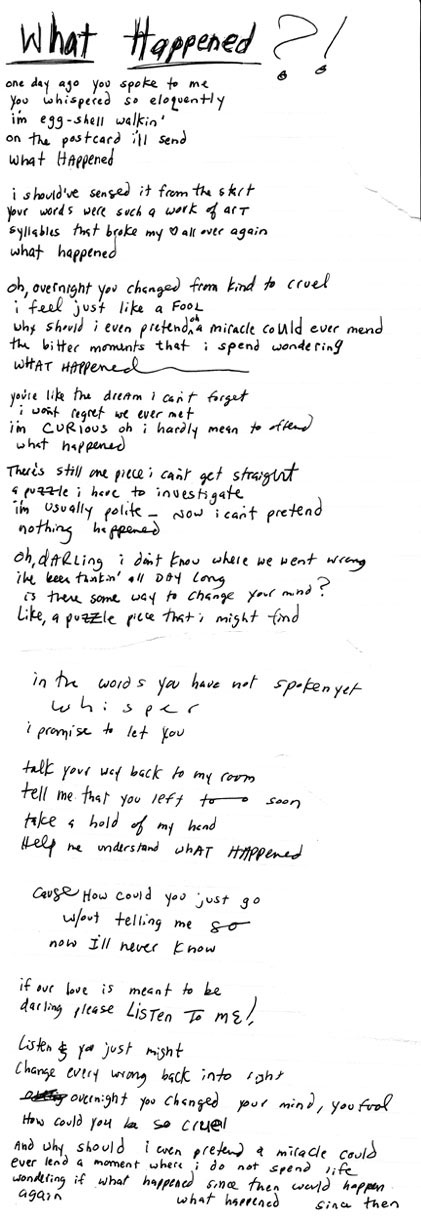 What Happened ?!
one day ago you spoke to me
you whispered so eloquently
i'm egg-shell walkin'
on the postcard i'll send
what HAppened
i should've sensed it from the start
your words were such a work of arT
syllables that broke my ♡ all over again
what happened
oh, overnight you changed from kind to cruel
i feel just like a FOOL
why should i even pretend, oh a miracle could ever mend
the bitter moments that i spend wondering
WHAT HAPPened
you're like the dream i can't forget
i won't regret we ever met
i'm CURiOUS oh i hardly mean to offend
what happened
There's still one piece i can't get straight
a puzzle i have to investigate
i'm usually polite - now i can't pretend
nothing happened
oh, dARLing i don't know where we went wrong
i've been thinkin' all DAY long
is there some way to change your mind?
Like, a puzzle piece that i might find
in the words you have not spoken yet
whisper
i promise to let you
talk your way back to my room
tell me that you left too soon
take a hold of my hand
Help me understand whAT HAPPened
cause How could you just go
w/out telling me so
now I'll never know
if our love is meant to be
darling please LisTen To mE!
Listen & you just might
Change every wrong back into right
overnight you changed your mind, you fool
How could you be so cruel
And why should i even pretend a miracle could
ever lend a moment where i do not spend life
wondering if what happened since then would happen
again what happened since then